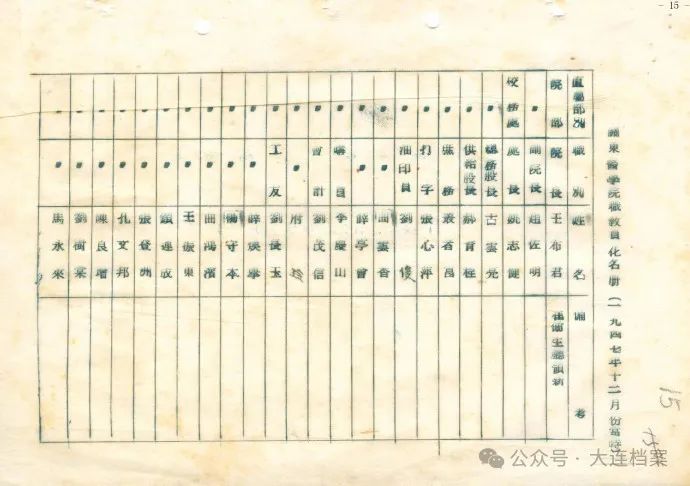 - 15 -
關東醫學院職教員化名冊(一九四七年十二月份
直屬部別 職別 姓名 備考
院部 院長 王布君
〃 副院長 趙佐明
校務處 處長 姚志健
〃 總務股長 古雲亮
〃 供給股長 郝育桂
〃 叢香昌
〃 打字 張心萍
〃 油印員 劉俊
〃 〃 曲雲香
〃 〃 薛學曾
〃 員 李慶山
〃 會計 劉茂信
〃 〃 珍
〃 工友 劉長玉
〃 〃 薛
〃 〃 楊守本
〃 〃 曲鴻濱
〃 〃 王振東
〃 〃 連成
〃 〃 張登洲
〃 〃 孔文邦
〃 〃 陳良增
〃 〃 劉樹棠
〃 〃 馬永來
15
公众号 · 大连档案